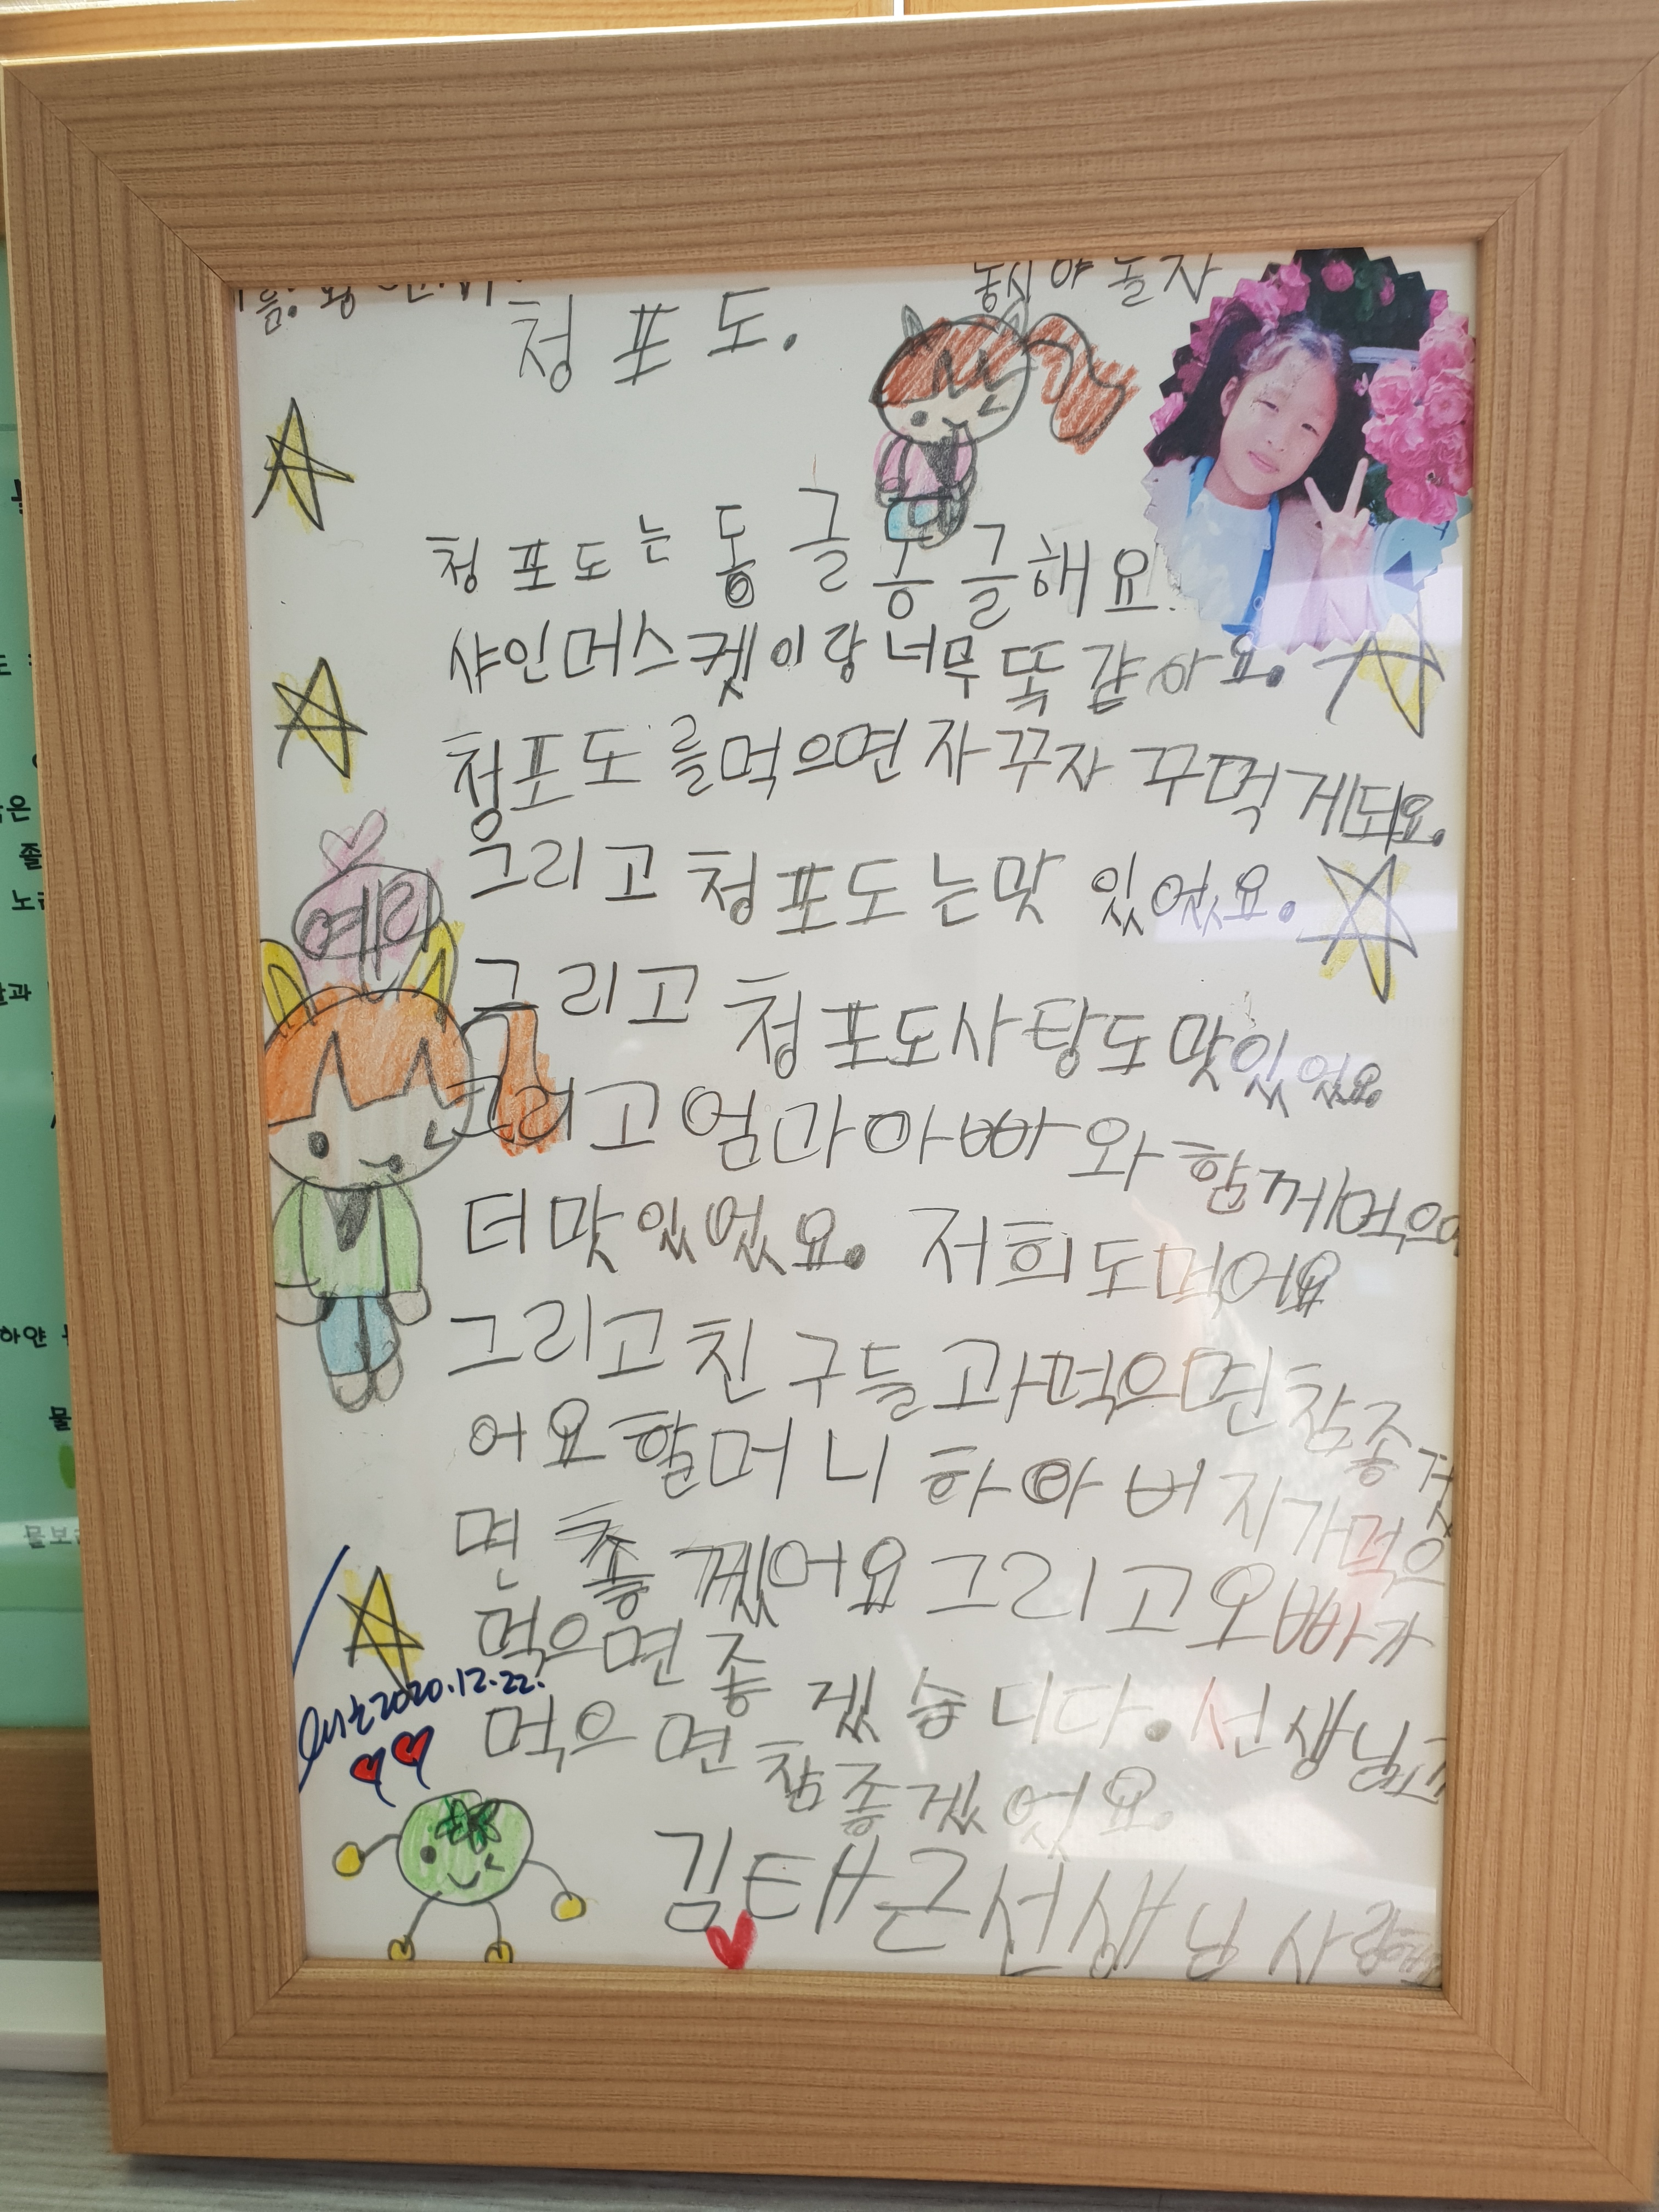 동시야 놀자
청포도.
청포도는 동글동글해요.
샤인머스켓이랑 너무 똑같아요.
청포도를먹으면 자꾸자꾸먹게되요.
그리고 청포도는맛 있었요.
예리
그리고 청포도사탕도맛있었요
그리고 엄마아빠와 함께먹으
더맛있었요. 저희도먹어요
그리고 친구들과먹으면참좋
어요 할머니 하아버지가먹으
면 좋겠어요 그리고 오빠가
먹으면 좋겠습니다. 선생님
먹으면 참좋겠엇요.
2020.12.22.
김태근선생님 사랑해요